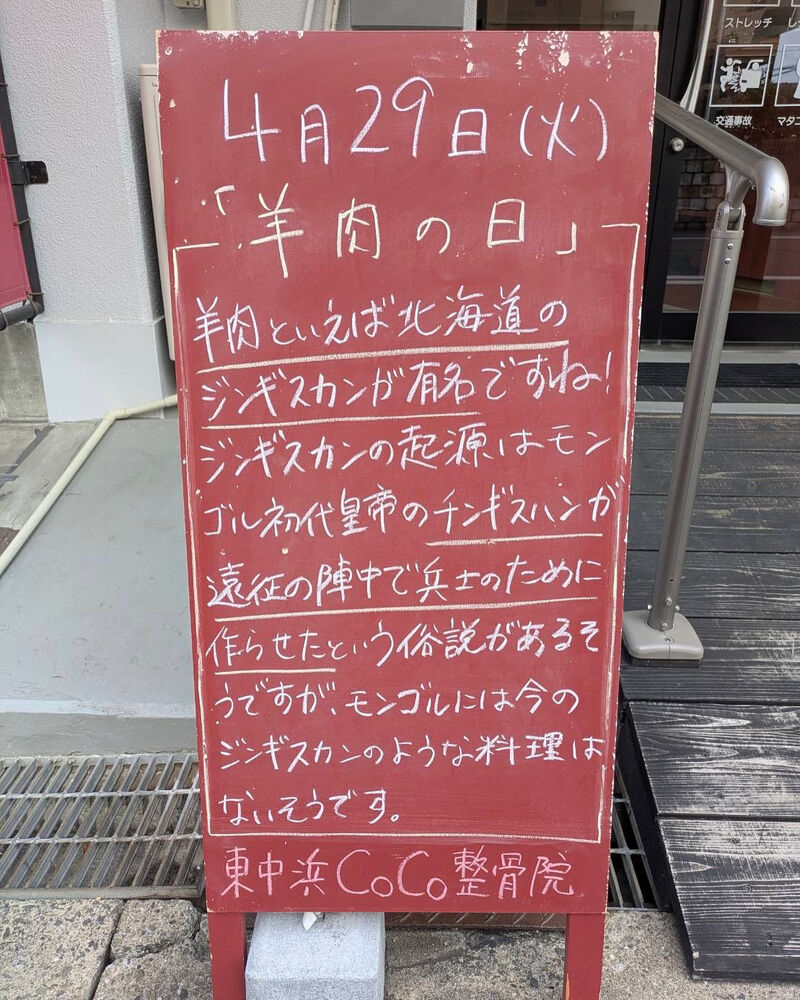 4月29日(火)
「羊肉の日」
羊肉といえば北海道の
ジンギスカンが有名ですね!
ジンギスカンの起源はモン
ゴル初代皇帝のチンギスハンが
遠征の陣中で兵士のために
作らせたという俗説があるそ
うですが、モンゴルには今の
ジンギスカンのような料理は
ないそうです。
東中浜CoCo整骨院
ストレッチ
交通事故
マタニ